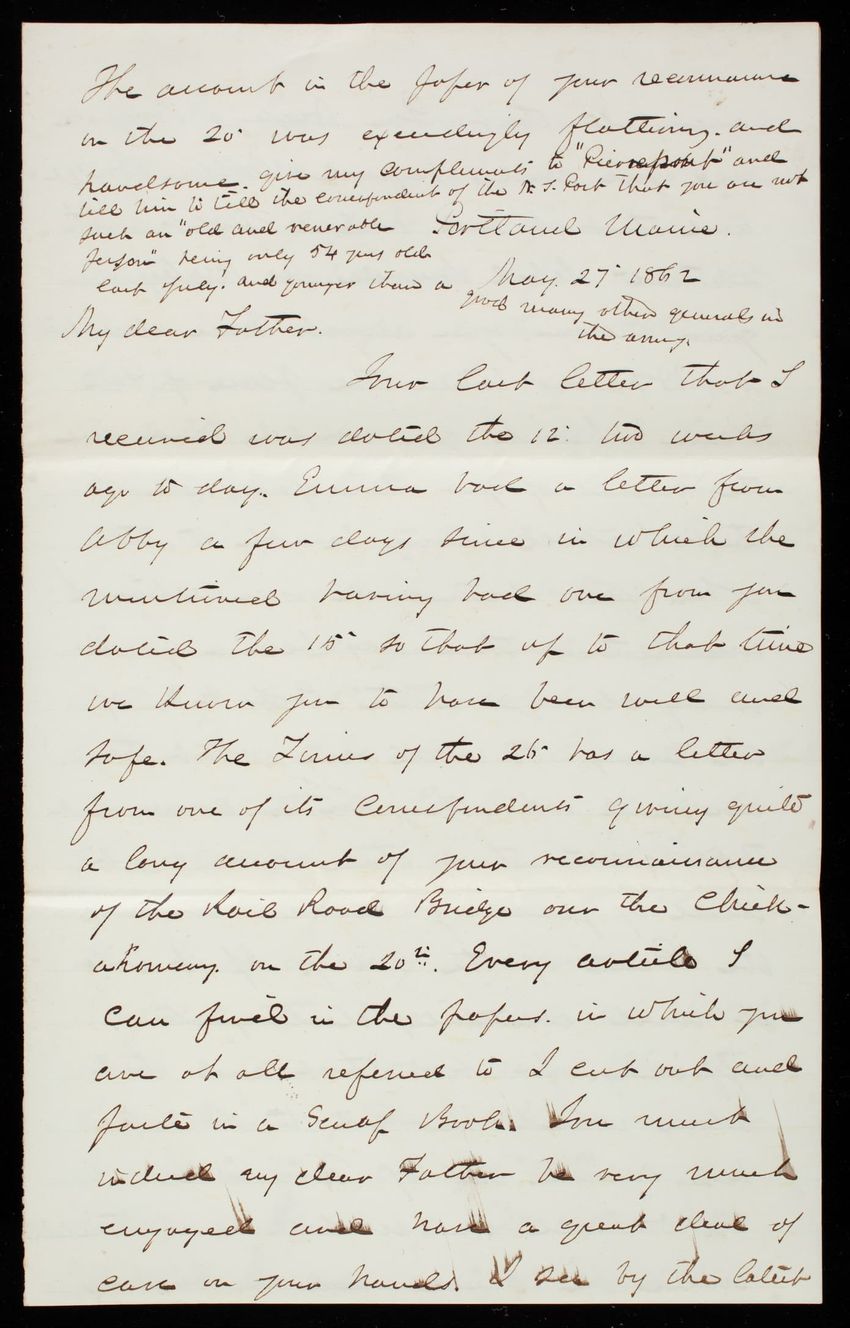 The account in the paper of your reconnaisance
on the 20th was exceedingly flattering. and
handsome. give my compliments to "Pierrepont" and
tell him to tell the correspondent of the N. Y. Post that you are not
such an "old and venerable
person" being only 54 years old
last July. and younger than a
good many other generals in
the army.
Portland Maine.
May. 27th 1862
My dear Father.
Your last letter that I
received was dated the 12th two weeks
ago to day. Emma had a letter from
Abby a few days since in which she
mentioned having had one from you
dated the 15th so that up to that time
we know you to have been well and
safe. The Times of the 26th has a letter
from one of its correspondents giving quite
a long account of your reconnaissance
of the Rail Road Bridge over the Chick-
ahominy. on the 20th. Every article I
can find in the papers. in which you
are at all referred to I cut out and
paste in a Scrap Book. You must
indeed my dear Father be very much
engaged and have a great deal of
care on your hands. I see by the latest